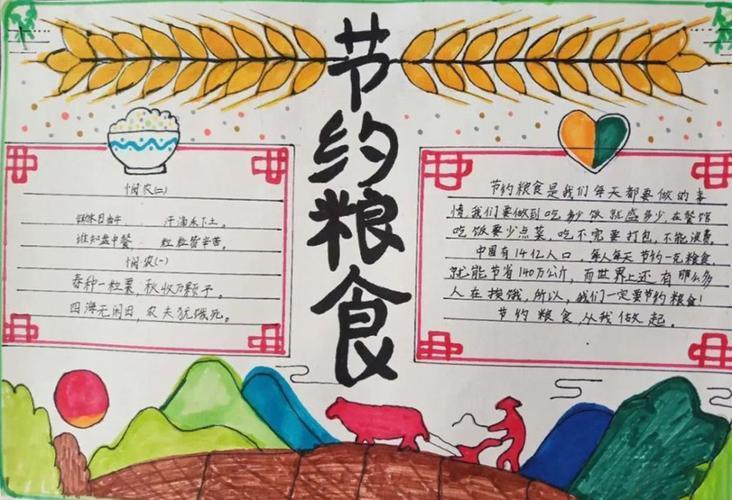 节约粮食
悯农(二)
日当午 汗滴禾下土。
谁知盘中餐 粒粒皆辛苦。
悯·农(一)
春种一粒粟,秋收万颗子。
四海无闲田,农夫犹饿死。
节约粮食是我们每天都要做的事
情,我们要做到吃多少饭就盛多少,在餐馆
吃饭要少点菜,吃不完要打包,不能浪费
中国有14亿人口,每人每天节约一克粮食,
就能节省140万公斤,而世界上还有那么多
人在挨饿,所以,我们一定要节约粮食!
节约粮食从我做起。